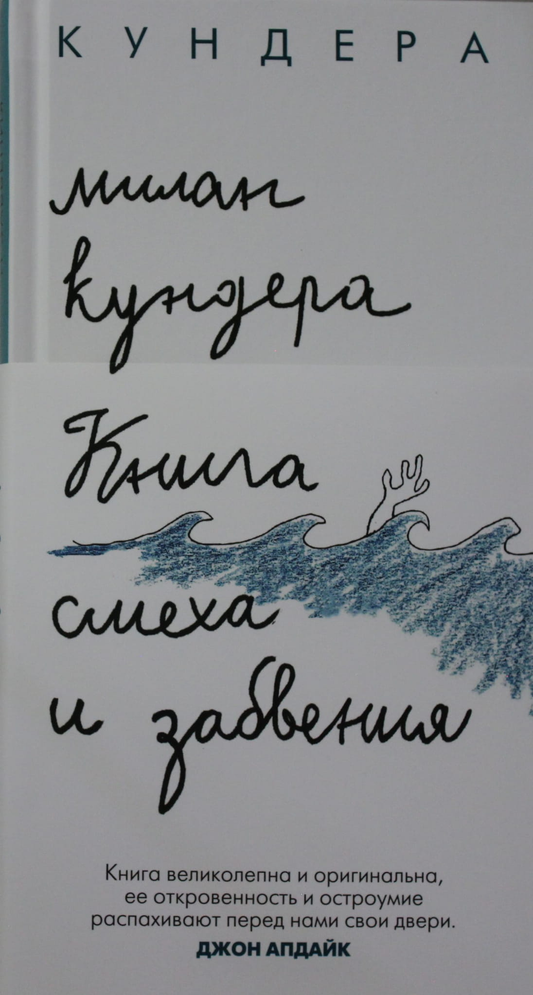 КУНДЕРА
милан
кундера
Книга
смеха
и забвения
Книга великолепна и оригинальна,
ее откровенность и остроумие
распахивают перед нами свои двери.
ДЖОН АПДАЙК